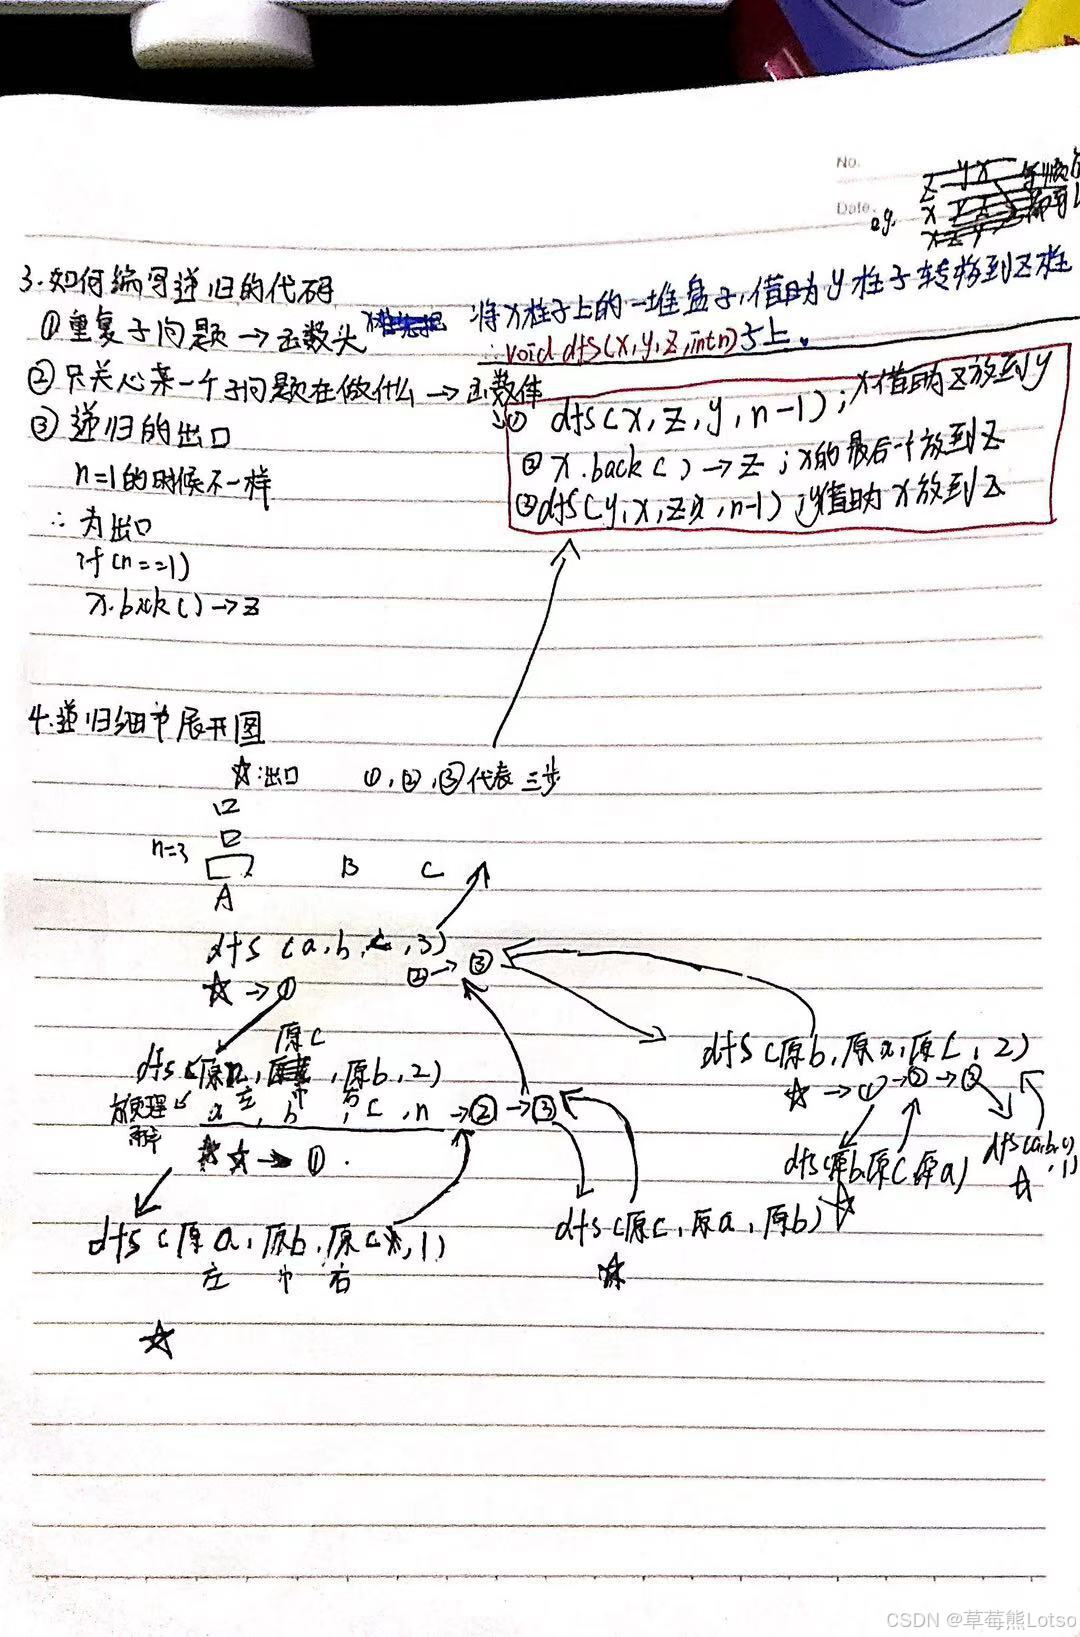 No.
Date.
e.g.
z y x
3.如何编写递归的代码
①重复子问题→函数头
将x柱子上的一堆盘子,借助y柱子转移到z柱
子上。
void dfs(x,y,z,int n)
②只关心某一个子问题在做什么→函数体
① dfs(x,z,y,n-1);x借助z放到y
② x.back()→z;x的最后一个放到z
③ dfs(y,x,z,n-1);y借助x放到z
③递归的出口
n=1的时候不一样
∴为出口
if(n==1)
x.back()→z
4.递归细节展开图
☆:出口 ①,②,③代表三步
n=3
A B C
dfs(a,b,c,3)
☆→① ②→③
dfs(原a,原c,原b,2)
左 中 右
方便理解
a,b,c,n→②→③
☆→①.
dfs(原b,原a,原c,2)
☆→①→②→③
dfs(原b,原c,原a)
☆
dfs(a,b,c,1)
☆
dfs(原a,原b,原c,1)
左 中 右
☆
dfs(原c,原a,原b)
☆
CSDN @草莓熊Lotso